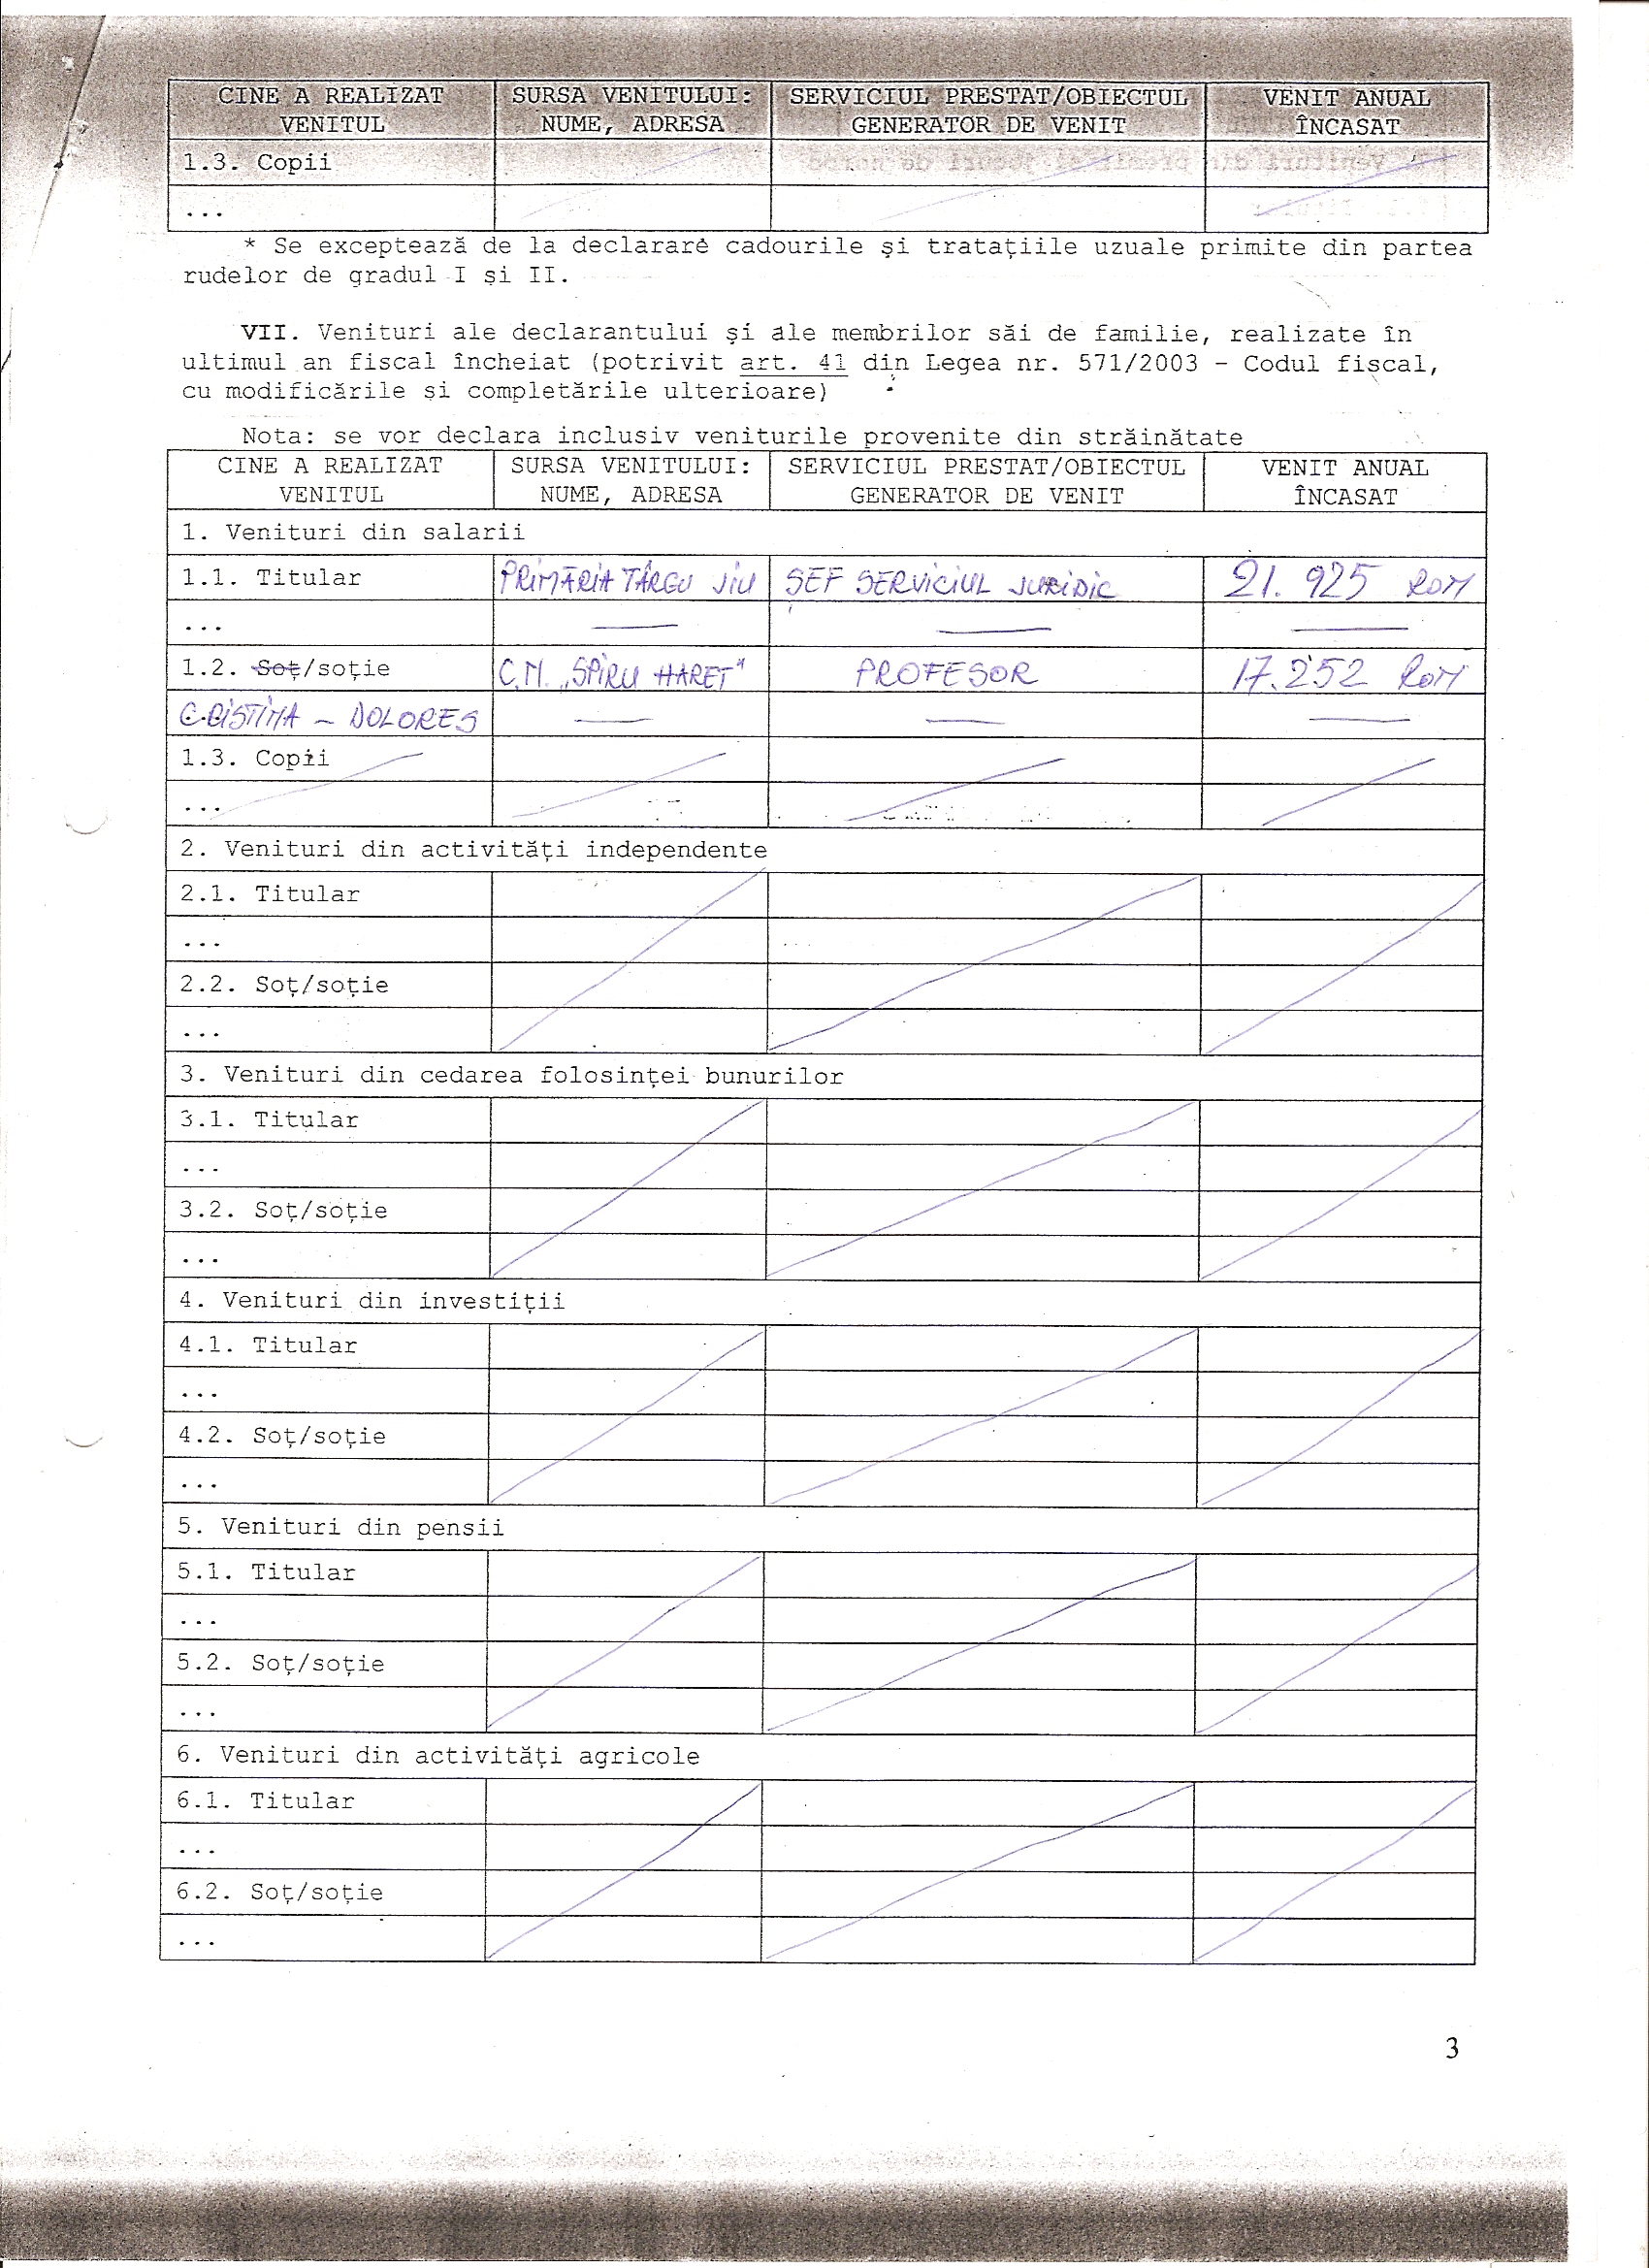 CINE A REALIZAT VENITUL SURSA VENITULUI: NUME, ADRESA SERVICIUL PRESTAT/OBIECTUL GENERATOR DE VENIT VENIT ANUAL ÎNCASAT
1.3. Copii
...
* Se exceptează de la declarare cadourile și tratațiile uzuale primite din partea
rudelor de gradul I și II.
VII. Venituri ale declarantului și ale membrilor săi de familie, realizate în
ultimul an fiscal încheiat (potrivit art. 41 din Legea nr. 571/2003 - Codul fiscal,
cu modificările și completările ulterioare)
Nota: se vor declara inclusiv veniturile provenite din străinătate
CINE A REALIZAT VENITUL SURSA VENITULUI: NUME, ADRESA SERVICIUL PRESTAT/OBIECTUL GENERATOR DE VENIT VENIT ANUAL ÎNCASAT
1. Venituri din salarii
1.1. Titular PRIMĂRIA TÂRGU JIU ȘEF SERVICIUL JURIDIC 21.925 RON
... — — —
1.2. Soț/soție C.N. „SPIRU HARET" PROFESOR 17.252 RON
CRISTINA - DOLORES — — —
1.3. Copii
...
2. Venituri din activități independente
2.1. Titular
...
2.2. Soț/soție
...
3. Venituri din cedarea folosinței bunurilor
3.1. Titular
...
3.2. Soț/soție
...
4. Venituri din investiții
4.1. Titular
...
4.2. Soț/soție
...
5. Venituri din pensii
5.1. Titular
...
5.2. Soț/soție
...
6. Venituri din activități agricole
6.1. Titular
...
6.2. Soț/soție
...
3